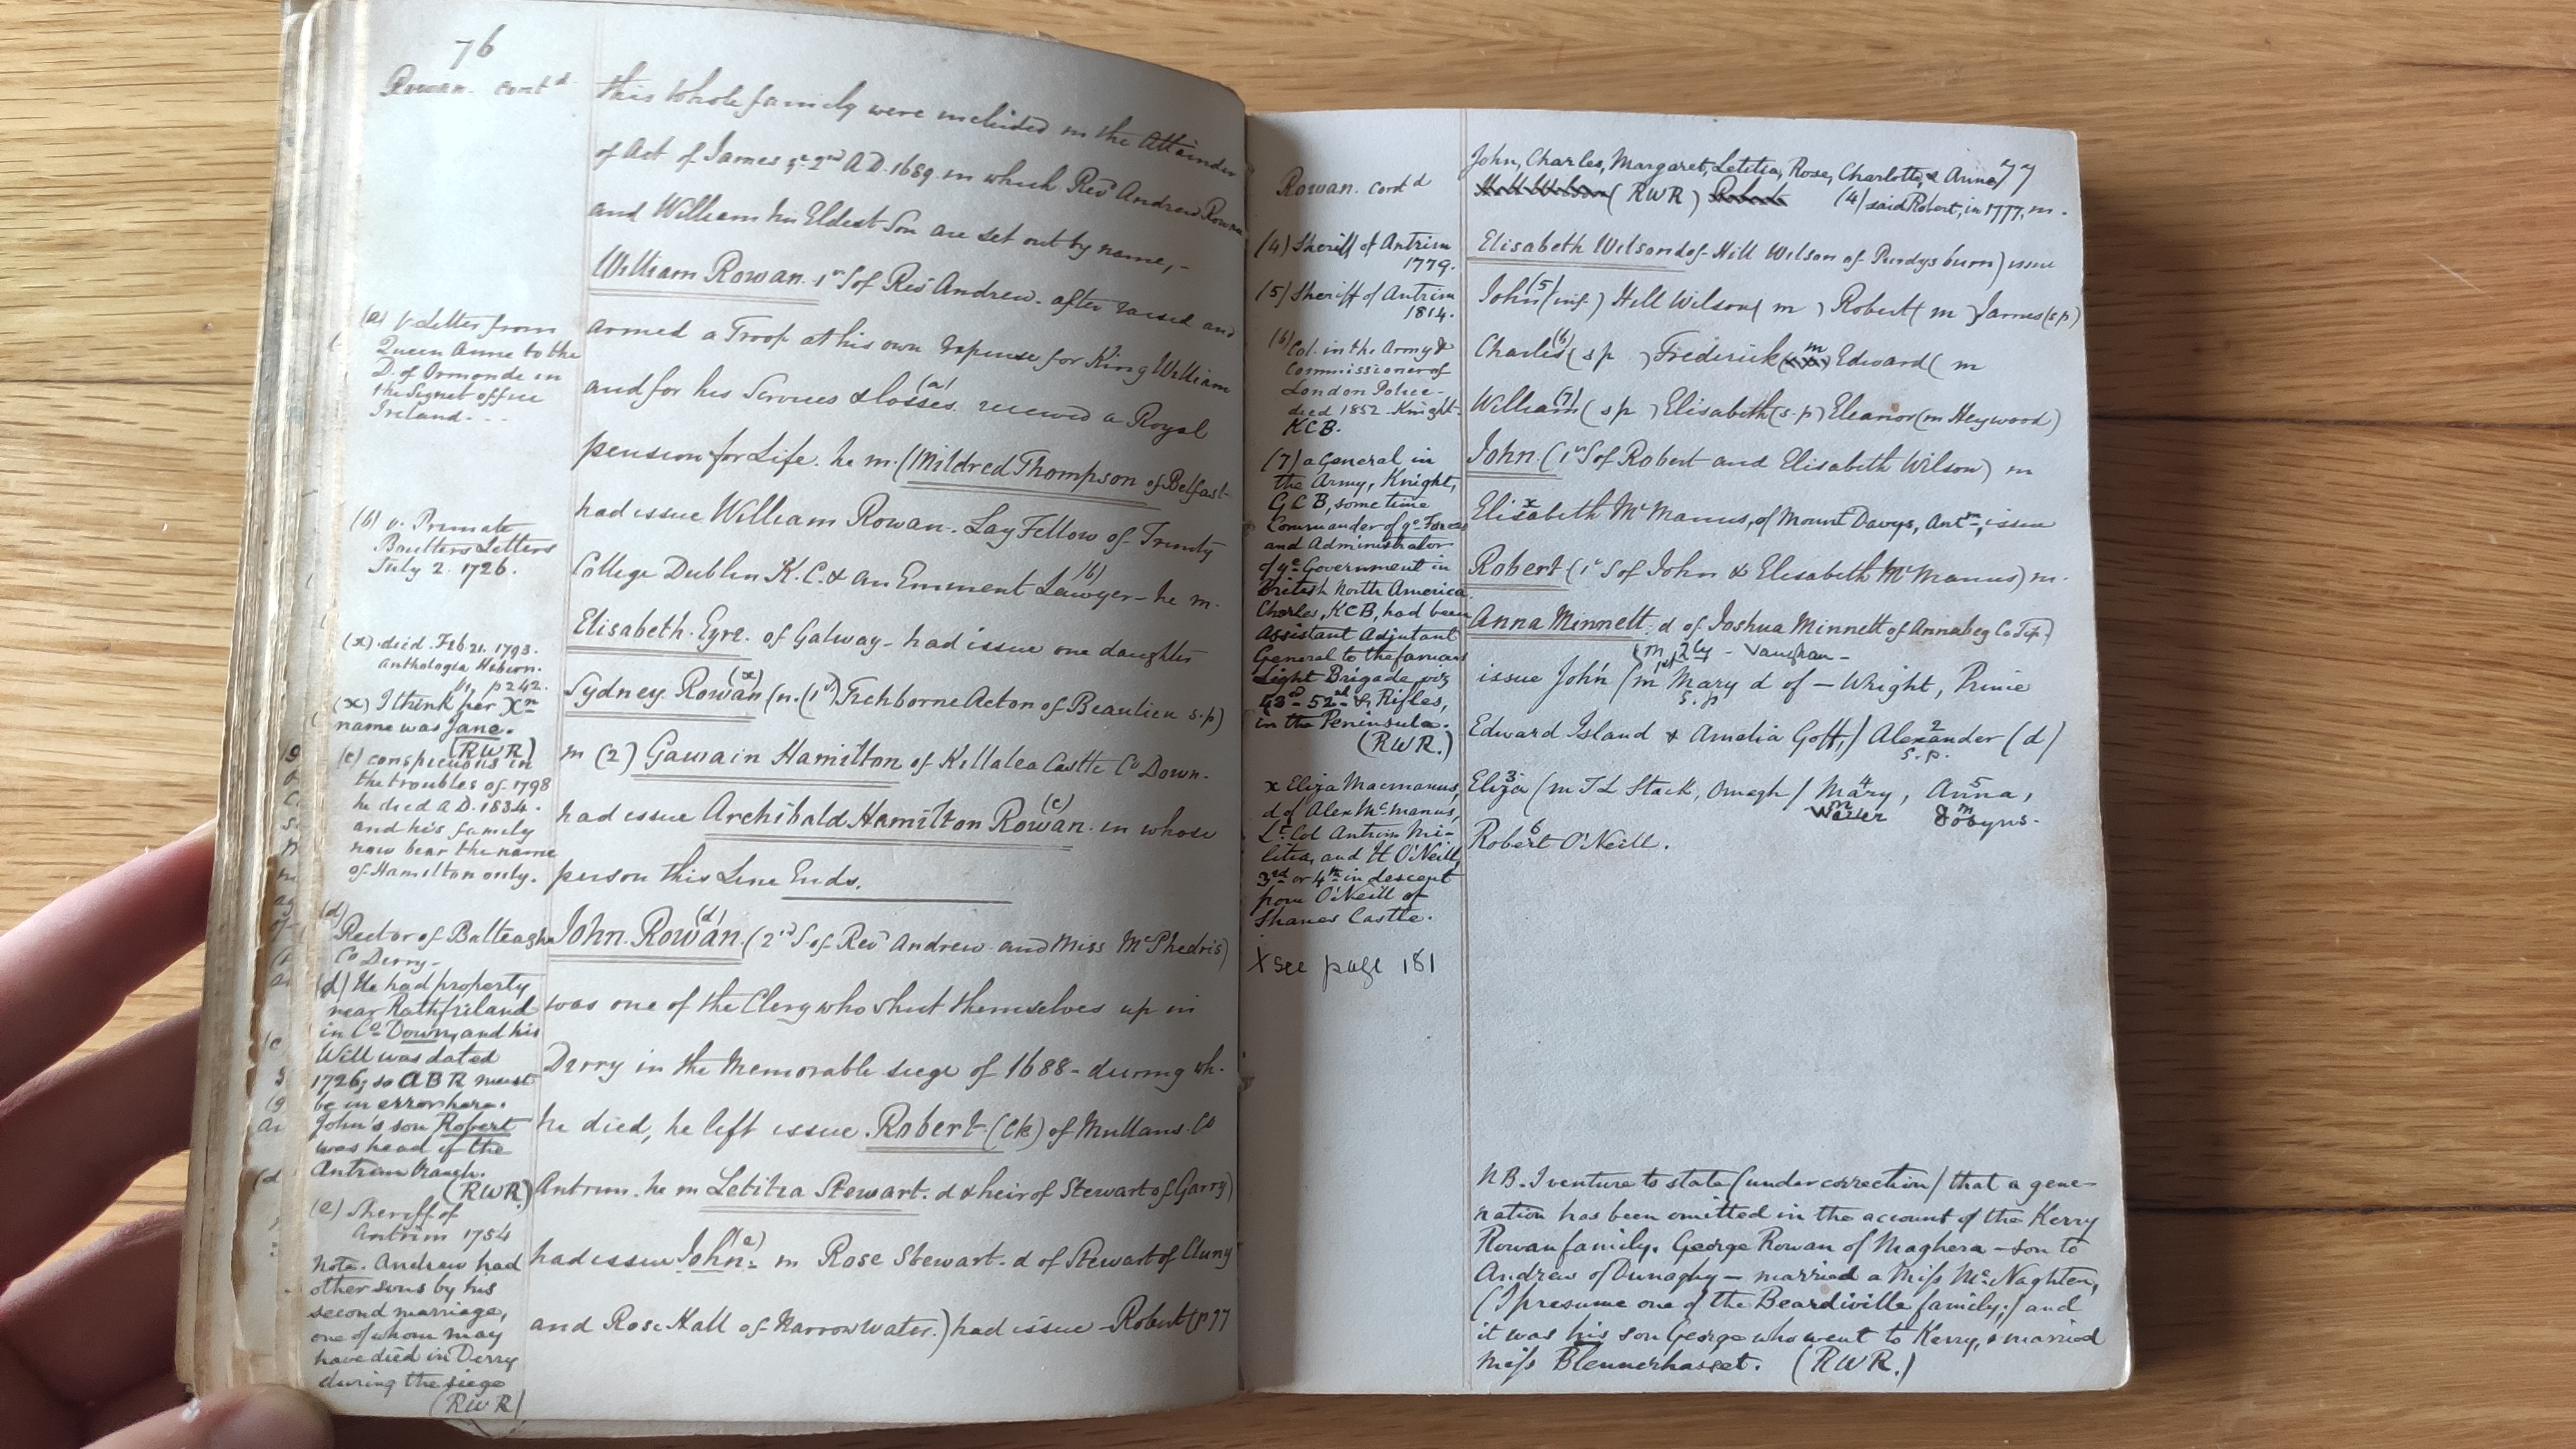 76
Rowan. cont.d
this whole family were included in the Attainder
of Act of James ye 2nd AD. 1689. in which Revd Andrew Rowan
and William his Eldest Son are set out by name,-
William Rowan. 1st S of Revd Andrew. after raised and
armed a Troop at his own Expense for King William
and for his Services & losses (a) received a Royal
pension for Life. he m. (Mildred Thompson of Belfast-
had issue William Rowan. Lay Fellow of Trinity
College Dublin K.C. & an Eminent Lawyer (b) - he m.
Elisabeth Eyre. of Galway - had issue one daughter
Sydney. Rowan (x) (m. (1st) Tichborne Acton of Beaulieu s.p)
m (2) Gawain Hamilton of Killalea Castle Co Down.
had issue Archibald Hamilton Rowan (c). in whose
person this Line Ends.
John. Rowan (d). (2nd S. of Revd Andrew and Miss McPhedris)
was one of the Clergy who shut themselves up in
Derry in the Memorable siege of 1688 - during wh.
he died, he left issue. Robert. (Ck) of Mullans. Co
Antrim. he m Letitia Stewart. d & heir of Stewart of Garry)
had issue John (e). m Rose Stewart. d of Stewart of Cluny
and Rose Hall of Narrow Water.) had issue - Robert (p 77
(a) v. Letter from
Queen Anne to the
D. of Ormonde in
the Signet office
Ireland. - -
(b) v. Primate
Boulters Letters
July 2. 1726.
(x) died. Feb 21. 1793.
Anthologia Hibern.
p 242.
(x) I think her Xn
name was Jane.
(RWR)
(c) conspicuous in
the troubles of 1798
he died A D. 1834.
and his family
now bear the name
of Hamilton only.
(d)
Rector of Balteagh
Co Derry -
(d) He had property
near Rathfriland
in Co Down, and his
Will was dated
1726; so ABR must
be in error here.
John's son Robert
was head of the
Antrim branch.
(RWR)
(e) Sheriff of
Antrim 1754
Note. Andrew had
other sons by his
second marriage,
one of whom may
have died in Derry
during the siege
(RWR)
77
Rowan. cont d
John, Charles, Margaret, Letitia, Rose, Charlotte, & Anne
Hill Wilson (RWR) Robert (4) said Robert, in 1777, m.
Elisabeth Wilson d of Hill Wilson of Purdysburn) issue
John (5) (inf.) Hill Wilson ( m ) Robert ( m ) James (s p)
Charles (6) ( s p ) Frederick ( m ) Edward ( m
William (7) ( s p ) Elisabeth (s. p) Eleanor (m Heywood)
John. (1st S of Robert and Elisabeth Wilson) m
x
Elisabeth McManus, of Mount Davys, Antm, issue
Robert (1st S of John & Elisabeth McManus) m.
Anna Minnett. d of Joshua Minnett of Annabeg Co Tip.)
(m 2ly - Vaughan -
issue John (m 1st Mary d of - Wright, Prince
s. p
Edward Island & Amelia Goff,) Alexander 2 (d)
s. p.
Eliza 3 (m T L Stack, Omagh / Mary 4, Anna 5,
m Waller m Dobyns.
Robert 6 O'Neill.
(4) Sheriff of Antrim
1779.
(5) Sheriff of Antrim
1814.
(6)
Col. in the Army &
Commissioner of
London Police -
died 1852. Knight.
KCB.
(7) a General in
the Army, Knight,
GCB, some time
Commander of ye Forces
and Administrator
of ye Government in
British North America
Charles, KCB, had been
Assistant Adjutant
General to the famous
Light Brigade, viz
43d - 52nd & Rifles,
in the Peninsula.
(RWR.)
x Eliza Macmanus,
d of Alex McManus,
Lt. Col Antrim Mi-
litia, and H O'Neill,
3rd or 4th in descent
from O'Neill of
Shanes Castle.
X see page 181
NB. I venture to state (under correction) that a gene-
ration has been omitted in the account of the Kerry
Rowan family. George Rowan of Maghera - son to
Andrew of Dunaghy - married a Miss McNaghten,
(I presume one of the Beardiville family;) and
it was his son George who went to Kerry, & married
Miss Blennerhasset. (RWR.)